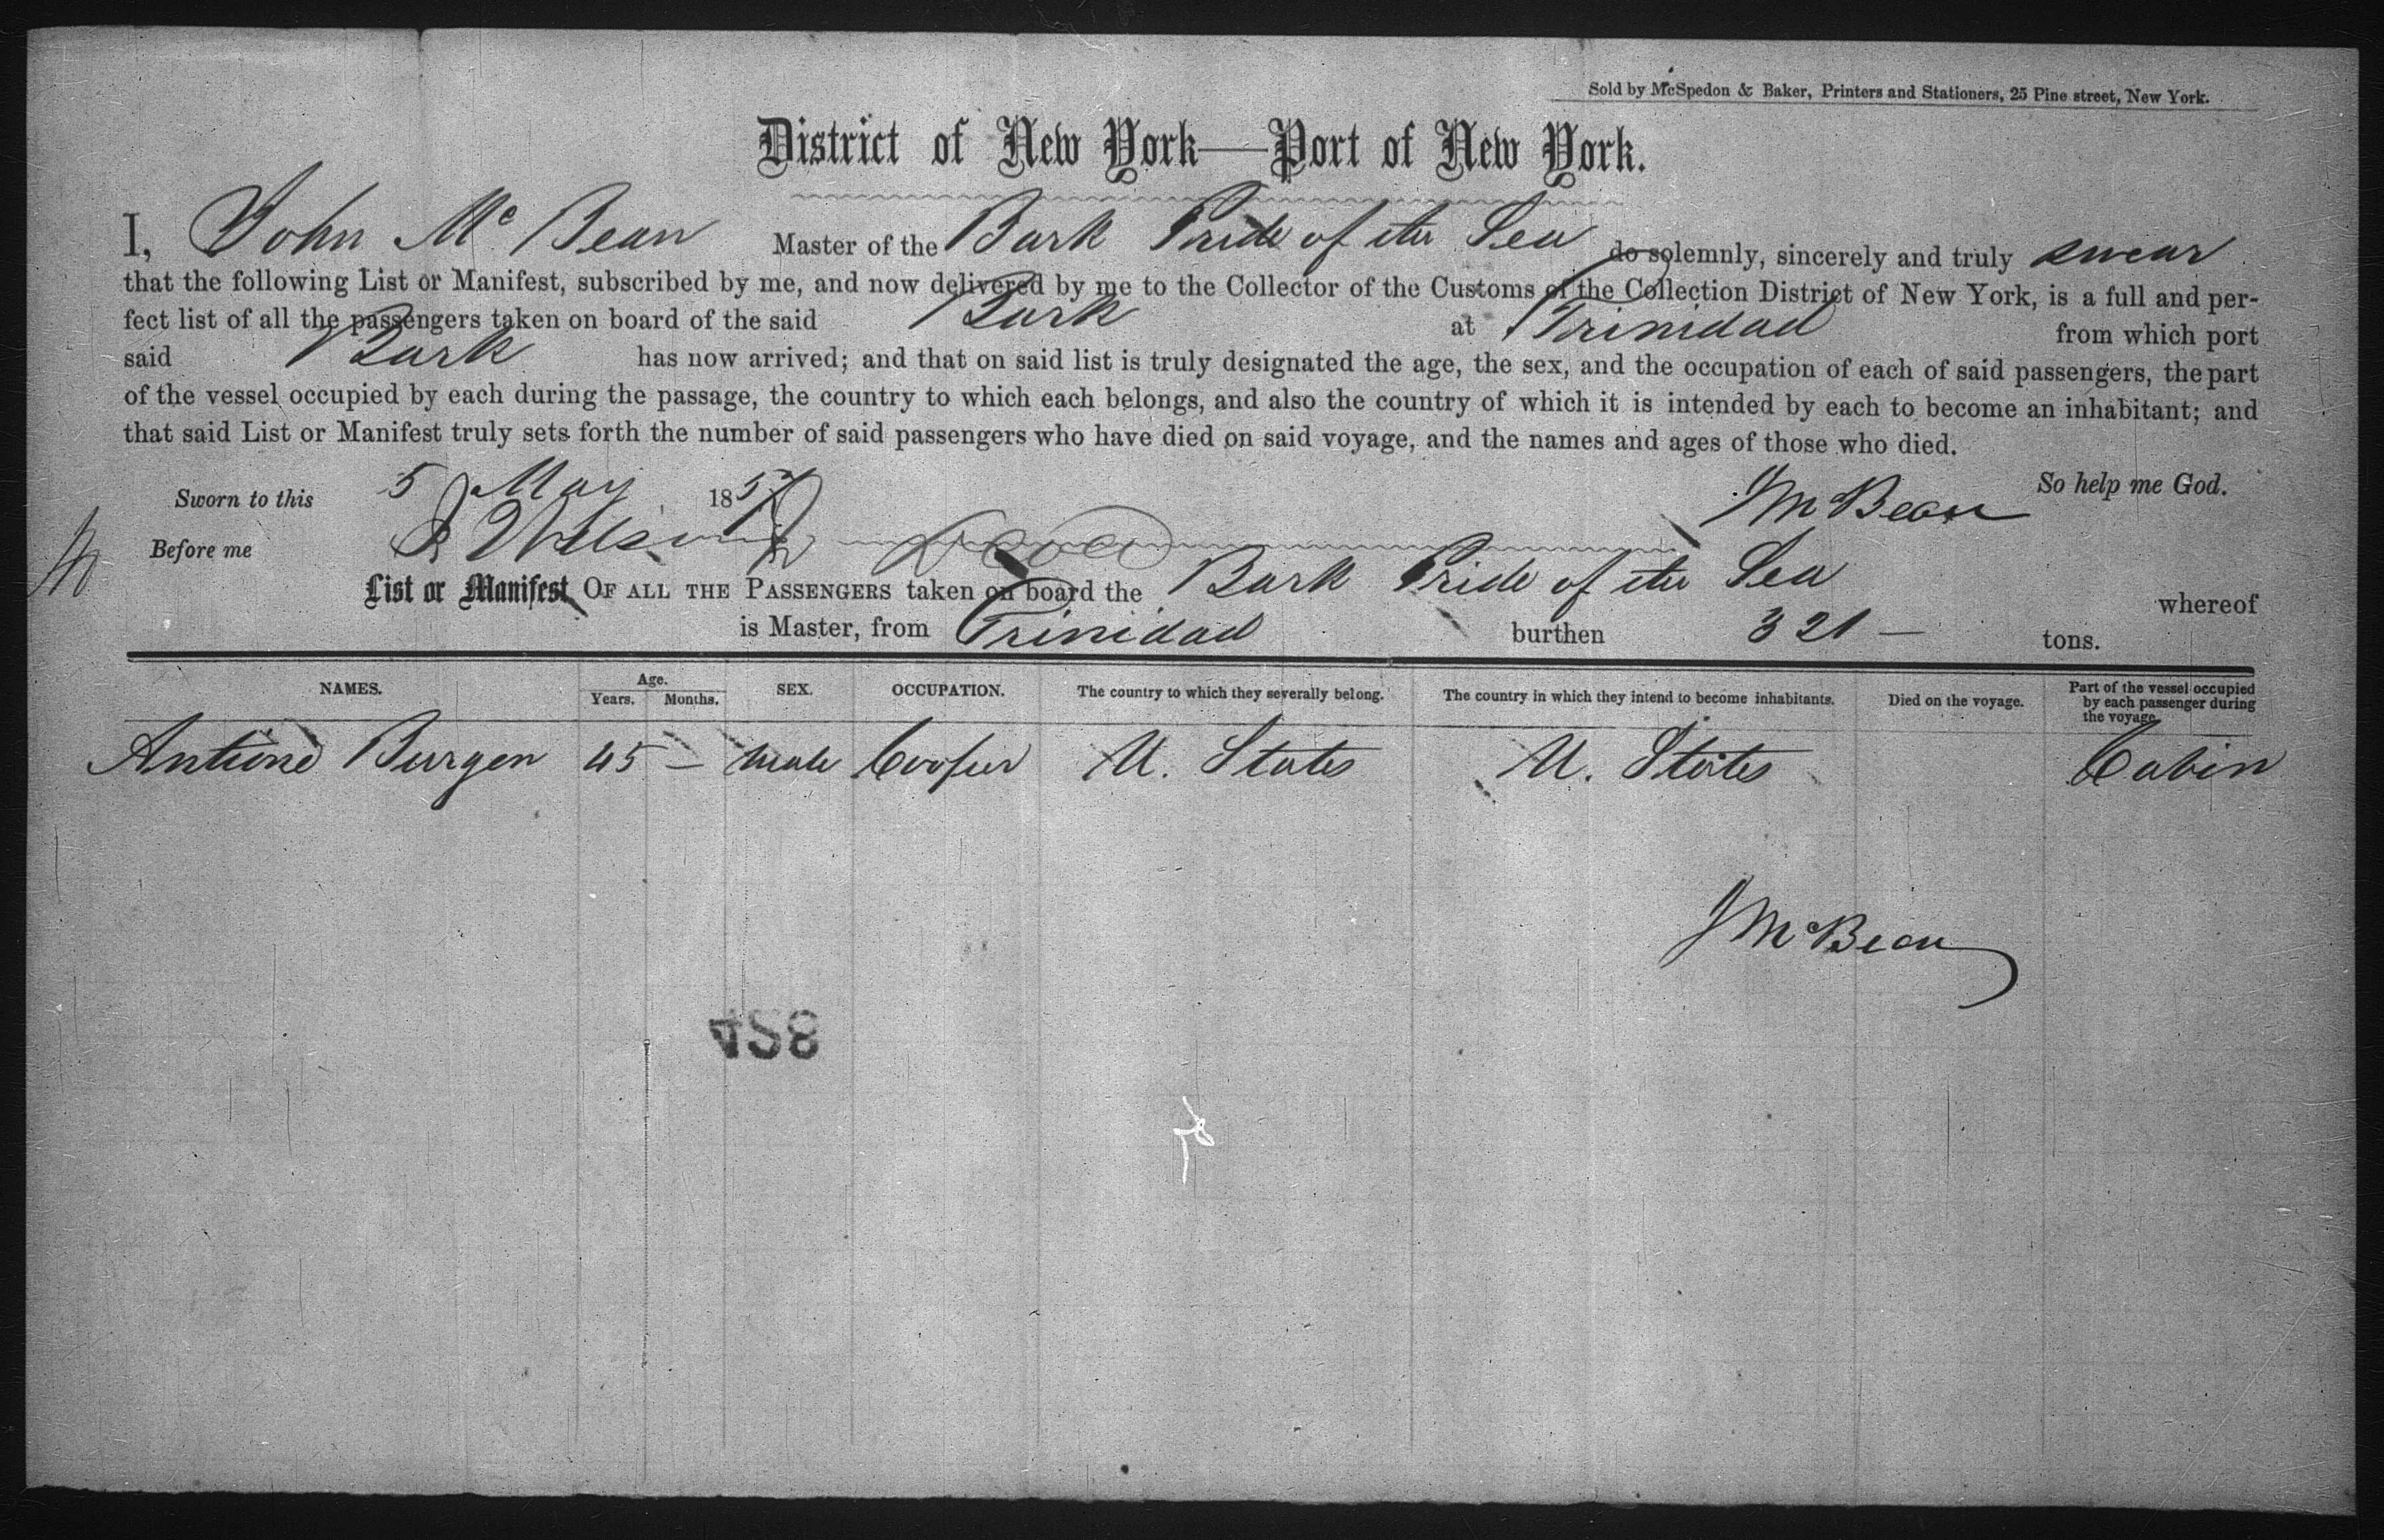 Sold by McSpedon & Baker, Printers and Stationers, 25 Pine street, New York.
District of New York—Port of New York.
I, John Mc Bean Master of the Bark Pride of the Sea do solemnly, sincerely and truly swear
that the following List or Manifest, subscribed by me, and now delivered by me to the Collector of the Customs of the Collection District of New York, is a full and per-
fect list of all the passengers taken on board of the said Bark at Trinidad from which port
said Bark has now arrived; and that on said list is truly designated the age, the sex, and the occupation of each of said passengers, the part
of the vessel occupied by each during the passage, the country to which each belongs, and also the country of which it is intended by each to become an inhabitant; and
that said List or Manifest truly sets forth the number of said passengers who have died on said voyage, and the names and ages of those who died.
So help me God.
Sworn to this 5 May 185
J McBean
Before me
List or Manifest OF ALL THE PASSENGERS taken on board the Bark Pride of the Sea whereof
is Master, from Trinidad burthen 321 — tons.
NAMES. Age. Years. Months. SEX. OCCUPATION. The country to which they severally belong. The country in which they intend to become inhabitants. Died on the voyage. Part of the vessel occupied by each passenger during the voyage.
Antione Burgen 45 — Male Cooper U. States U. States Cabin
J McBean